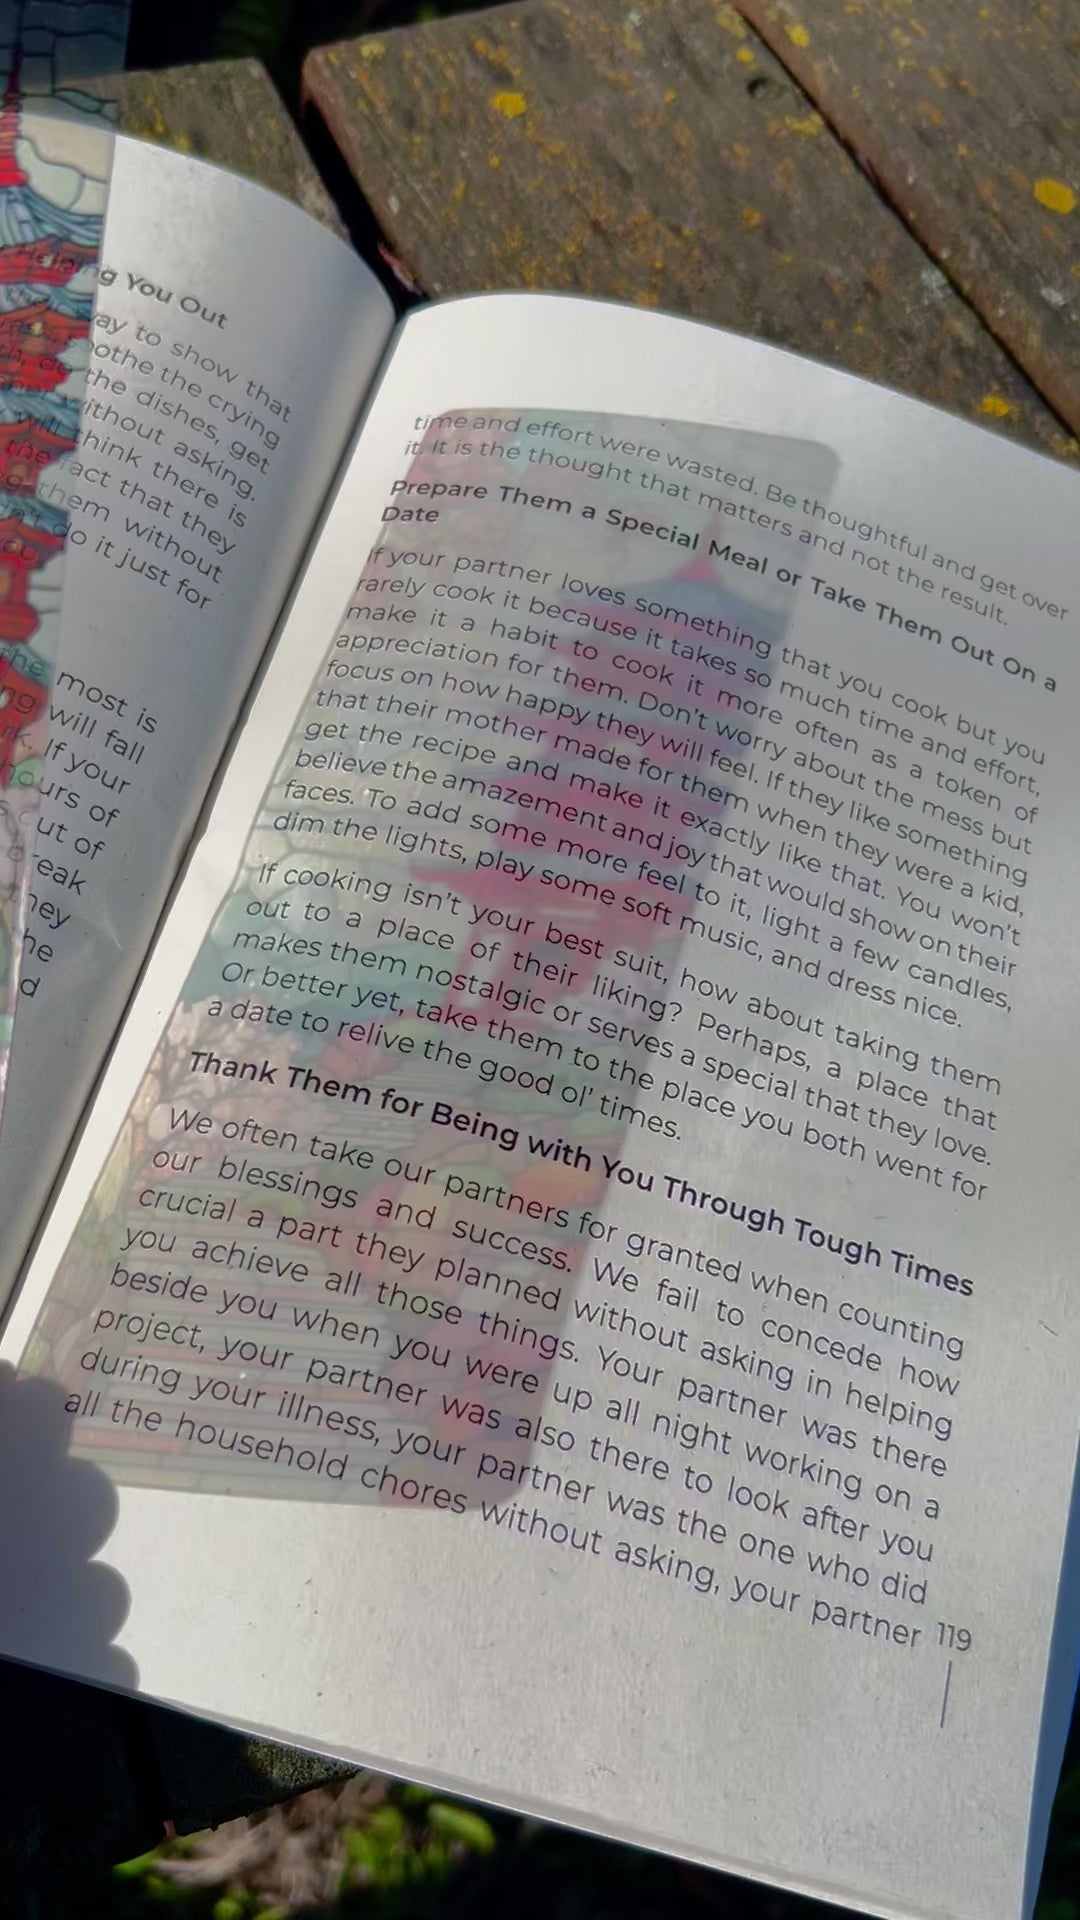 Helping You Out
way to show that
soothe the crying
the dishes, get
without asking.
will think there is
the fact that they
them without
do it just for
the most is
ng will fall
rk. If your
hours of
out of
eak
they
he
d
time and effort were wasted. Be thoughtful and get over
it. It is the thought that matters and not the result.
Prepare Them a Special Meal or Take Them Out On a
Date
If your partner loves something that you cook but you
rarely cook it because it takes so much time and effort,
make it a habit to cook it more often as a token of
appreciation for them. Don't worry about the mess but
focus on how happy they will feel. If they like something
that their mother made for them when they were a kid,
get the recipe and make it exactly like that. You won't
believe the amazement and joy that would show on their
faces. To add some more feel to it, light a few candles,
dim the lights, play some soft music, and dress nice.
If cooking isn't your best suit, how about taking them
out to a place of their liking? Perhaps, a place that
makes them nostalgic or serves a special that they love.
Or better yet, take them to the place you both went for
a date to relive the good ol' times.
Thank Them for Being with You Through Tough Times
We often take our partners for granted when counting
our blessings and success. We fail to concede how
crucial a part they planned without asking in helping
you achieve all those things. Your partner was there
beside you when you were up all night working on a
project, your partner was also there to look after you
during your illness, your partner was the one who did
all the household chores without asking, your partner
119